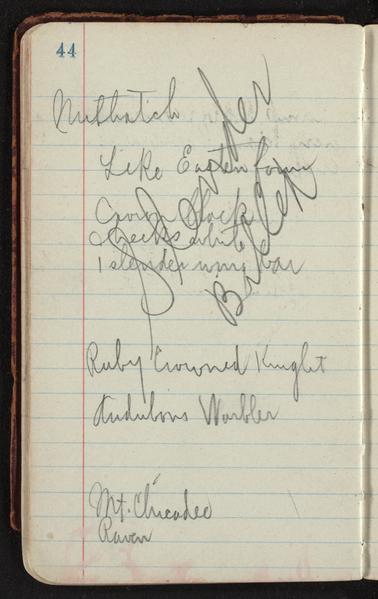 44
Nuthatch
Slender
Billed
Like Eastern form
Crown Black
Cheeks white
1 slender wing bar
Ruby Crowned Kinglet
Audubons Warbler
Mt. Chicadee
Raven